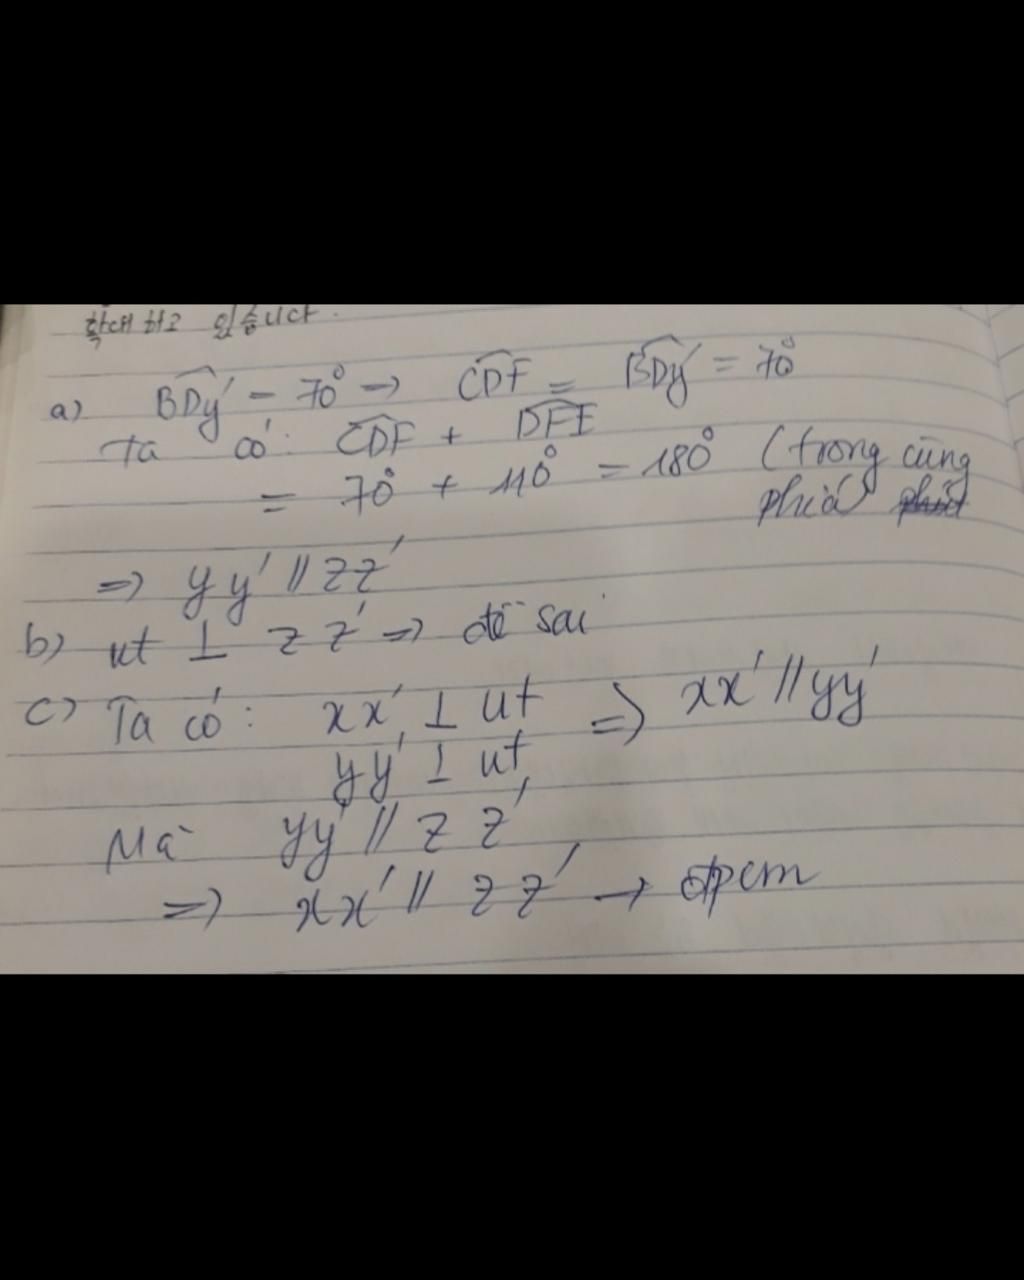 학대 하고 있습니다.
a) BDy' = 70° → CDF = BDy' = 70°
Ta có: CDF + DFE
= 70° + 110° = 180° (trong cùng
phía
=> yy' // zz'
b) ut ⊥ zz' => đề sai
c) Ta có: xx' ⊥ ut => xx' // yy'
yy' ⊥ ut
Mà yy' // zz'
=> xx' // zz' → đpcm